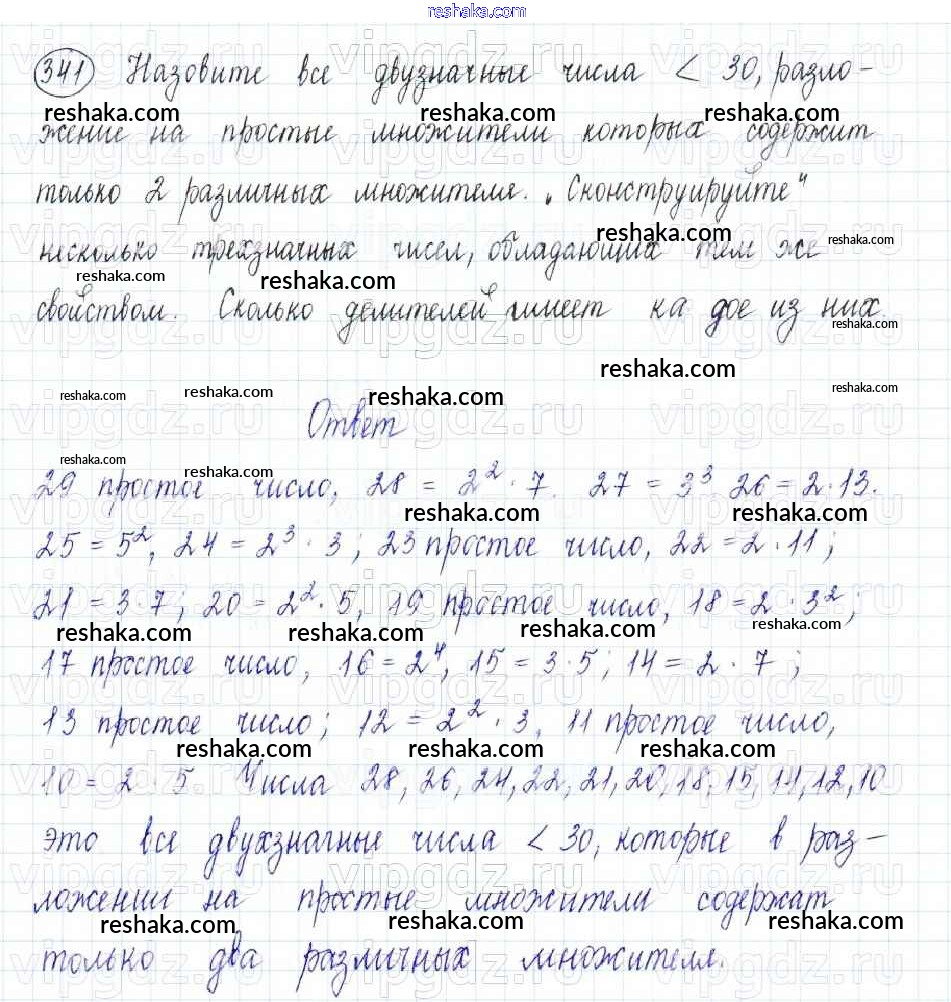 reshaka.com
341 Назовите все двузначные числа < 30, разло-
reshaka.com reshaka.com reshaka.com
жение на простые множители которых содержит
только 2 различных множителя. „Сконструируйте"
reshaka.com reshaka.com
несколько трехзначных чисел, обладающих тем же
reshaka.com reshaka.com
свойством. Сколько делителей имеет ка дое из них.
reshaka.com
reshaka.com
reshaka.com reshaka.com reshaka.com reshaka.com
Ответ
reshaka.com reshaka.com
29 простое число, 28 = 2² · 7. 27 = 3³ 26 = 2 · 13.
reshaka.com reshaka.com
25 = 5², 24 = 2³ · 3; 23 простое число, 22 = 2 · 11;
21 = 3 · 7; 20 = 2² · 5, 19 простое число, 18 = 2 · 3²;
reshaka.com reshaka.com reshaka.com reshaka.com
17 простое число, 16 = 2⁴, 15 = 3 · 5; 14 = 2 · 7;
13 простое число; 12 = 2² · 3, 11 простое число,
reshaka.com reshaka.com reshaka.com
10 = 2 · 5 Числа 28, 26, 24, 22, 21, 20, 18, 15, 14, 12, 10
это все двухзначные числа < 30, которые в раз-
ложении на простые множители содержат
reshaka.com reshaka.com reshaka.com
только два различных множителя.